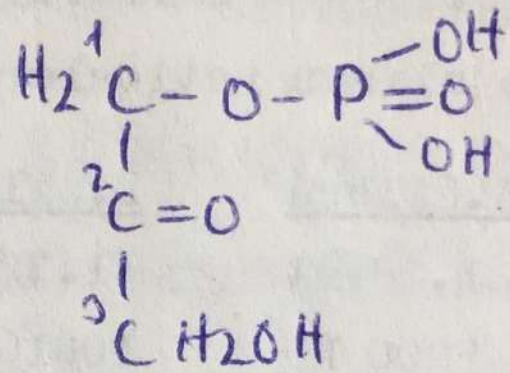 OH
H2 1C - O - P = O
OH
2C = O
3CH2OH